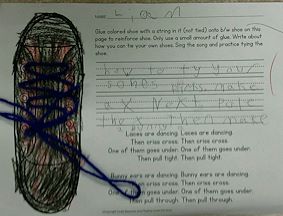 NAME: Liam
Glue colored shoe with a string in it (not tied) onto b/w shoe on this
page to reinforce shoe. Only use a small amount of glue. Write about
how you can tie your own shoes. Sing the song and practice tying the
shoe.
how to ty your
make
a x Next
the x then make
a bunny
Laces are dancing. Laces are dancing.
Then criss cross. Then criss cross.
One of them goes under. One of them goes under.
Then pull tight. Then pull tight.
Bunny ears are dancing. Bunny ears are dancing.
Then criss cross. Then criss cross.
One of them goes under. One of them goes under.
Then pull through. Then pull through.